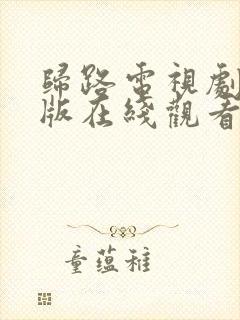 歸路電視劇
版在綫觀看
童蘊稚